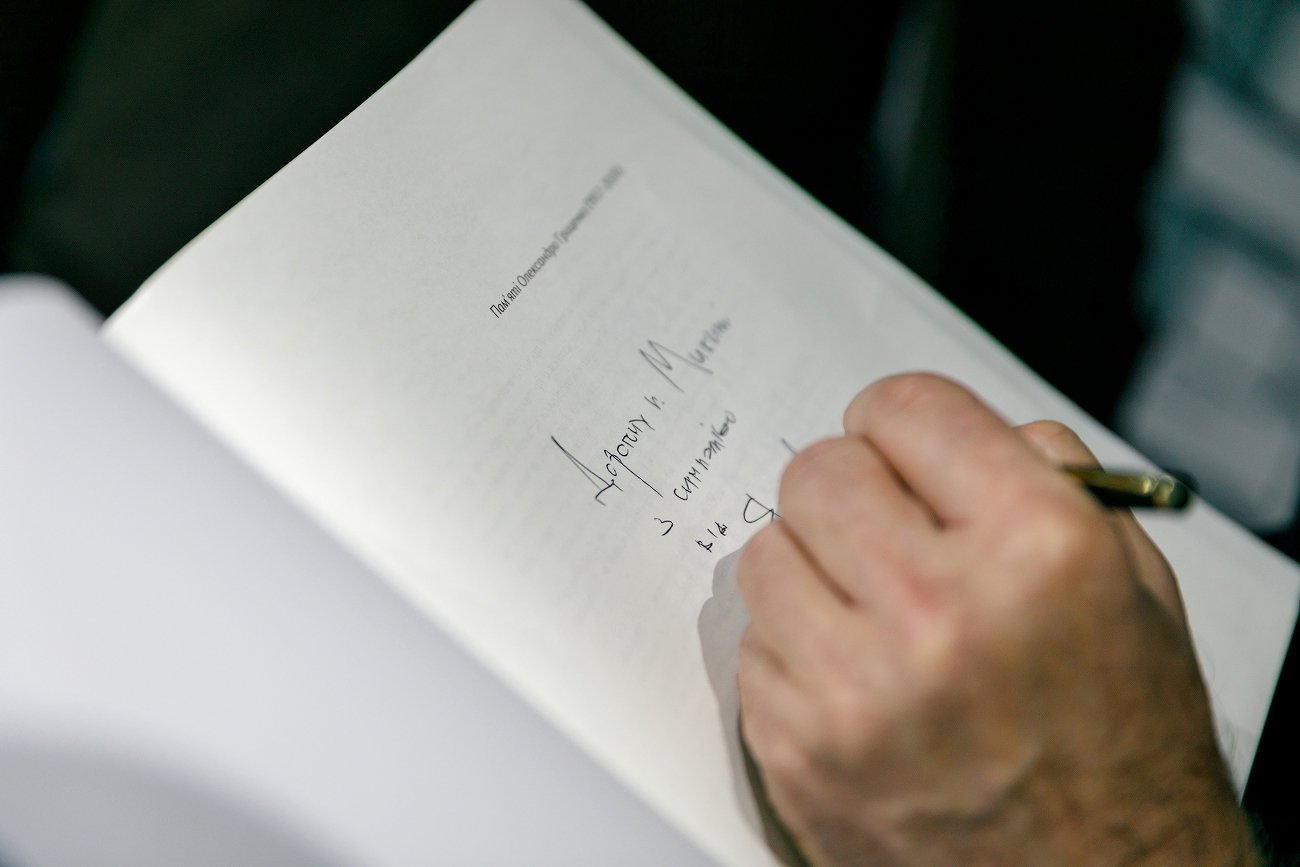 Пам'яті Олександра Гриценка (1957–2020)
Дорогому п. Миколі
з симпатією
від